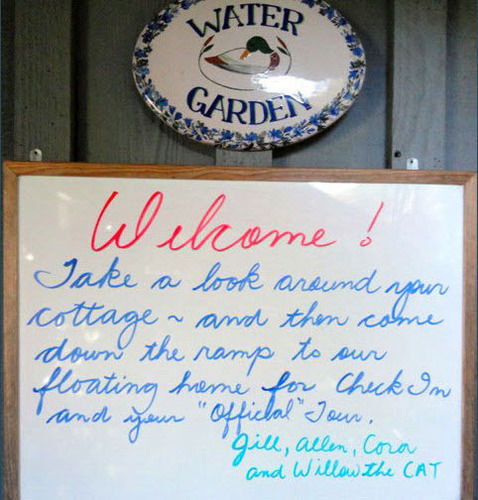 WATER
GARDEN
Welcome!
Take a look around your
cottage ~ and then come
down the ramp to our
floating home for Check In
and your "Official" Tour.
Jill, Allen, Cora
and Willow the CAT